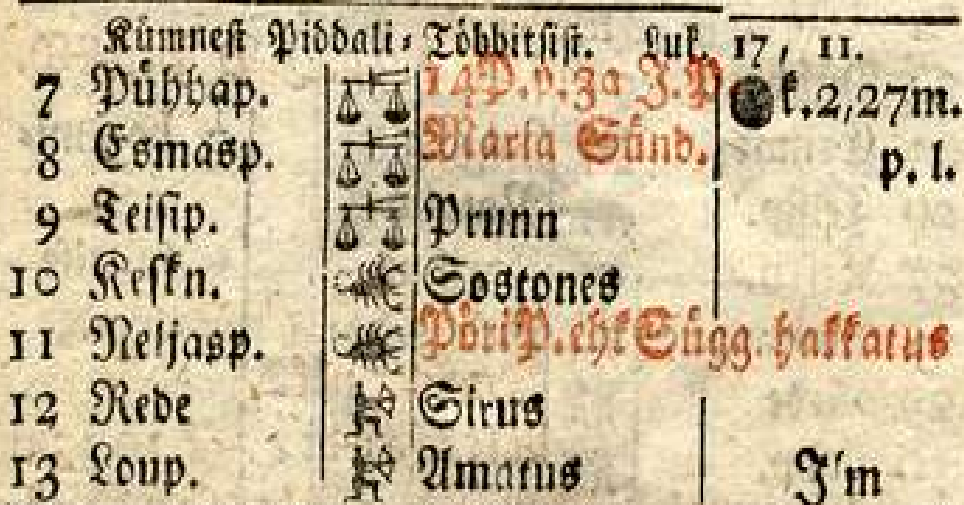 Kümnest Piddali-Tóbbitsist. Luk. 17, 11.
7 Pühhap. 14P.p.3a J.P k.2,27m.
8 Esmasp. Maria Sünd. p. l.
9 Teisip. Prunn
10 Keskn. Sostones
11 Neljasp. PöriP. ehk Sügg. hakkatus
12 Rede Sirus
13 Loup. Amatus J'm